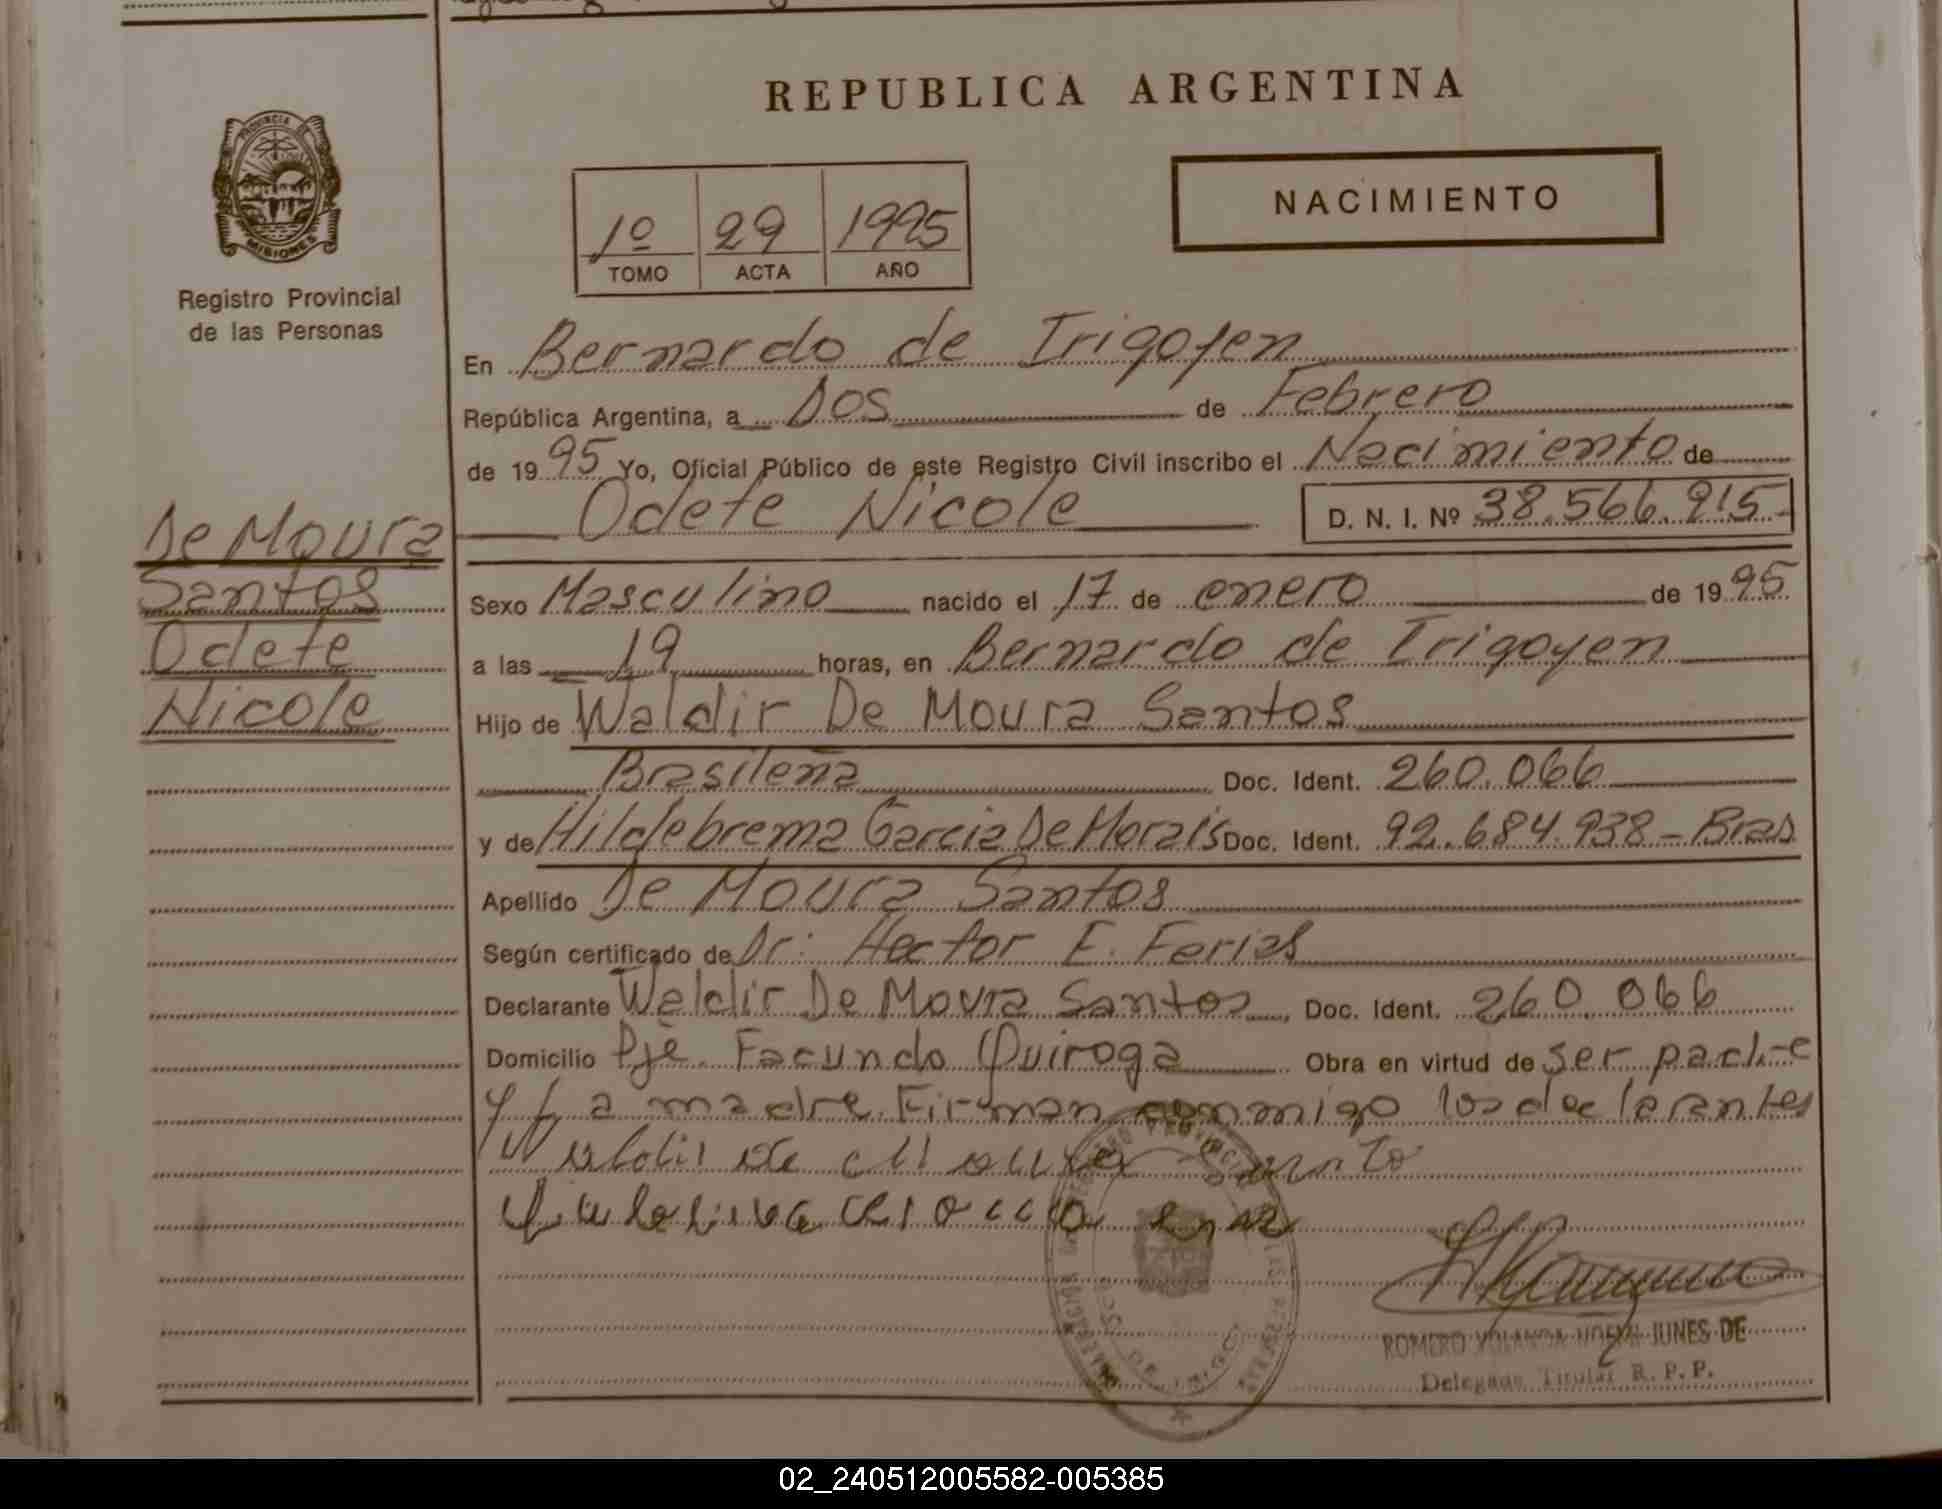 REPUBLICA ARGENTINA
PROVINCIA DE
MISIONES
Registro Provincial
de las Personas
1º 29 1995
TOMO ACTA AÑO
NACIMIENTO
En Bernardo de Irigoyen
República Argentina, a Dos de Febrero
de 1995 Yo, Oficial Público de este Registro Civil inscribo el Nacimiento de
Odete Nicole D. N. I. Nº 38.566.915-
De Moura
Santos
Odete
Nicole
Sexo Masculino nacido el 17 de enero de 1995
a las 19 horas, en Bernardo de Irigoyen
Hijo de Waldir De Moura Santos
Brasileña Doc. Ident. 260.066
y de Hildebrema Garcia De Morais Doc. Ident. 92.684.938-Bras
Apellido De Moura Santos
Según certificado de Dr: Hector E. Ferias
Declarante Waldir De Moura Santos, Doc. Ident. 260.066
Domicilio Pje. Facundo Quiroga Obra en virtud de ser padre
y La madre. Firman conmigo los declarantes
Waldir de Moura Santo
ROMERO YOLANDA NOEMI JUNES DE
Delegada Titular R. P. P.
02_240512005582-005385